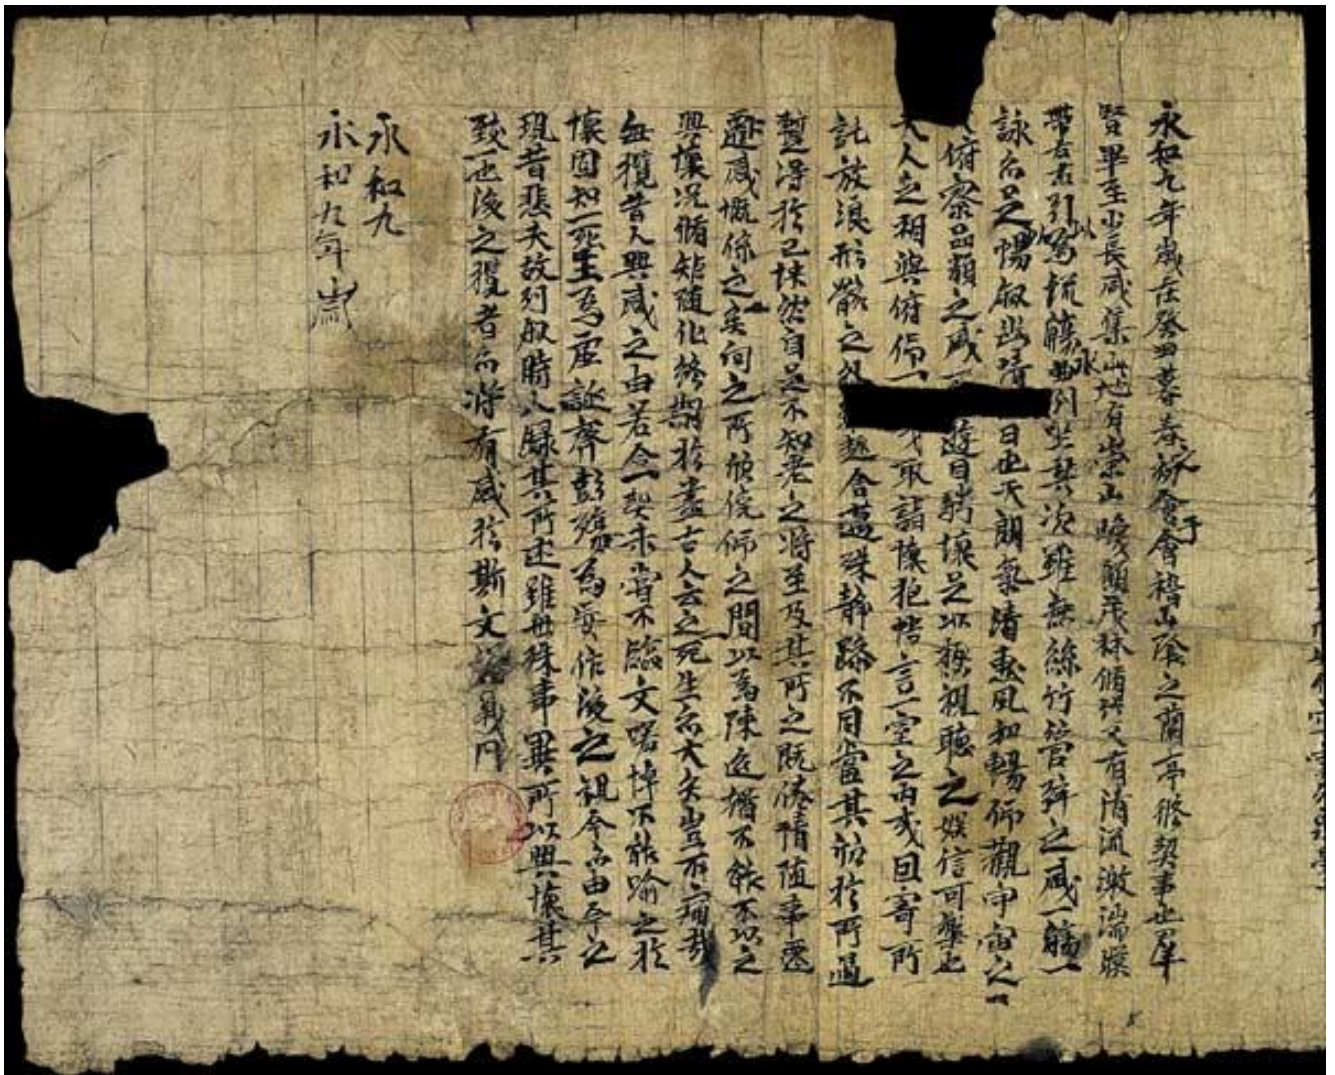 永和九年歲在癸丑暮春於會會稽山陰之蘭亭修禊事也羣
賢畢至少長咸集山地有崇山峻嶺茂林脩竹又有清流激湍暎
帶左右引以為流觴曲水列坐其次雖無絲竹管弦之盛一觴一
詠亦足以暢叙幽情日也天朗氣清惠風和暢仰觀宇宙之
俯察品類之盛遊目騁懷足以極視聽之娛信可樂也
人之相與俯仰一或取諸懷抱悟言一室之內或因寄所
託放浪形骸之外趣舍萬殊靜躁不同當其欣於所遇
暫得於己怏然自足不知老之將至及其所之既倦情隨事遷
感慨係之矣向之所欣俛仰之間以為陳迹猶不能不以之
興懷況脩短隨化終期於盡古人云之死生亦大矣豈不痛哉
每攬昔人興感之由若合一契未嘗不臨文嗟悼不能喻之於
懷固知一死生為虛誕齊彭殤為妄作後之視今亦由今之
視昔悲夫故列叙時人録其所述雖世殊事異所以興懷其
致一也後之攬者亦將有感於斯文
永和九
永和九年歲